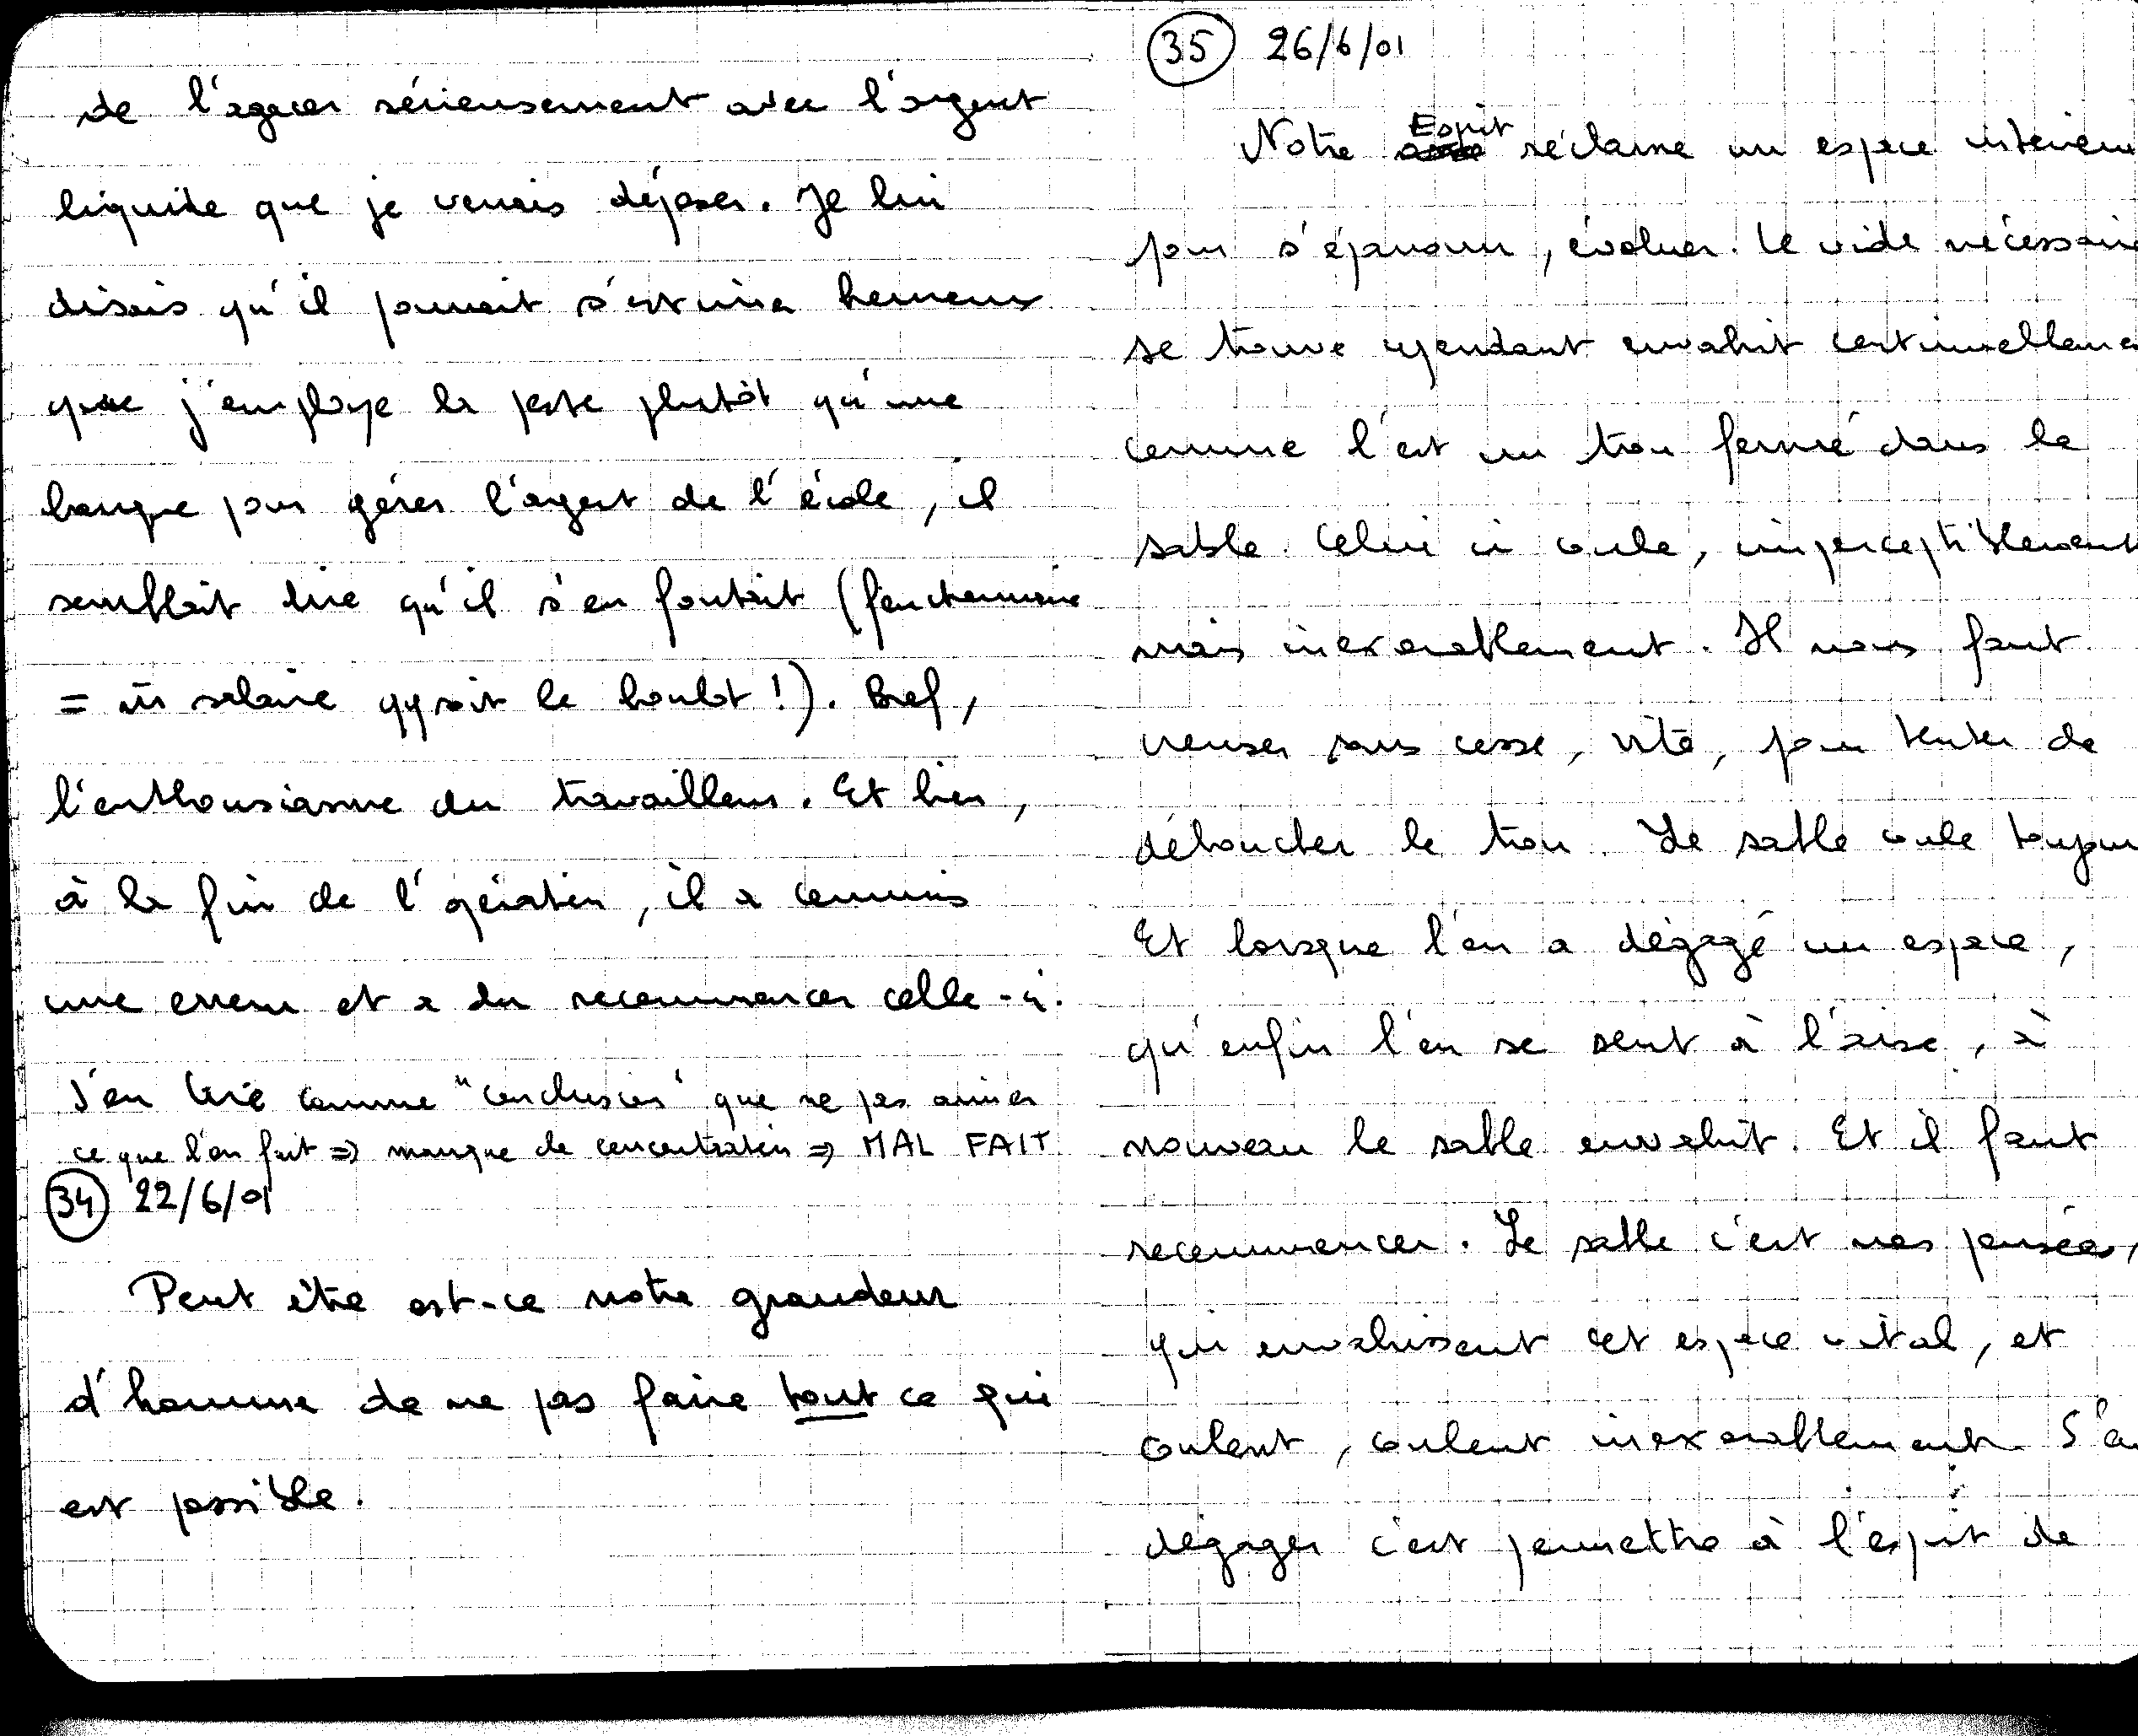 de l'agacer sérieusement avec l'argent
liquide que je venais déposer. Je lui
disais qu'il pouvait s'estimer heureux
que j'employe la poste plutôt qu'une
banque pour gérer l'argent de l'école, il
semblait dire qu'il s'en foutait (fonctionnaire
= m̄ salaire qq soit le boulot !). Bref,
l'enthousiasme du travailleur. Et bien,
à la fin de l'opération, il a commis
une erreur et a du recommencer celle-ci.
J'en tire comme "conclusion" que ne pas aimer
ce que l'on fait => manque de concentration => MAL FAIT
34 22/6/01
Peut être est-ce notre grandeur
d'homme de ne pas faire tout ce qui
est possible.
35 26/6/01
Notre Esprit réclame un espace intérieur
pour s'épanouir, évoluer. Le vide nécessaire
se trouve cependant envahit continuelleme
comme l'est un trou fermé dans le
sable. Celui ci coule, imperceptiblement
mais inexorablement. Il nous faut
creuser sans cesse, vite, pour tenter de
déboucher le trou. Le sable coule toujou
Et lorsque l'on a dégagé un espace,
qu'enfin l'on se sent à l'aise, à
nouveau le sable envahit. Et il faut
recommencer. Le sable c'est nos pensées,
qui envahissent cet espace vital, et
coulent, coulent inexorablement. S'en
dégager c'est permettre à l'esprit de